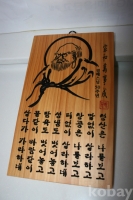 청산은 나를보고
말없이 살라하고
창공은 나를보고
티없이 살라하네
성냄도 벗어놓고
탐욕도 벗어놓고
물같이 바람같이
살다가 가라하네
kobay